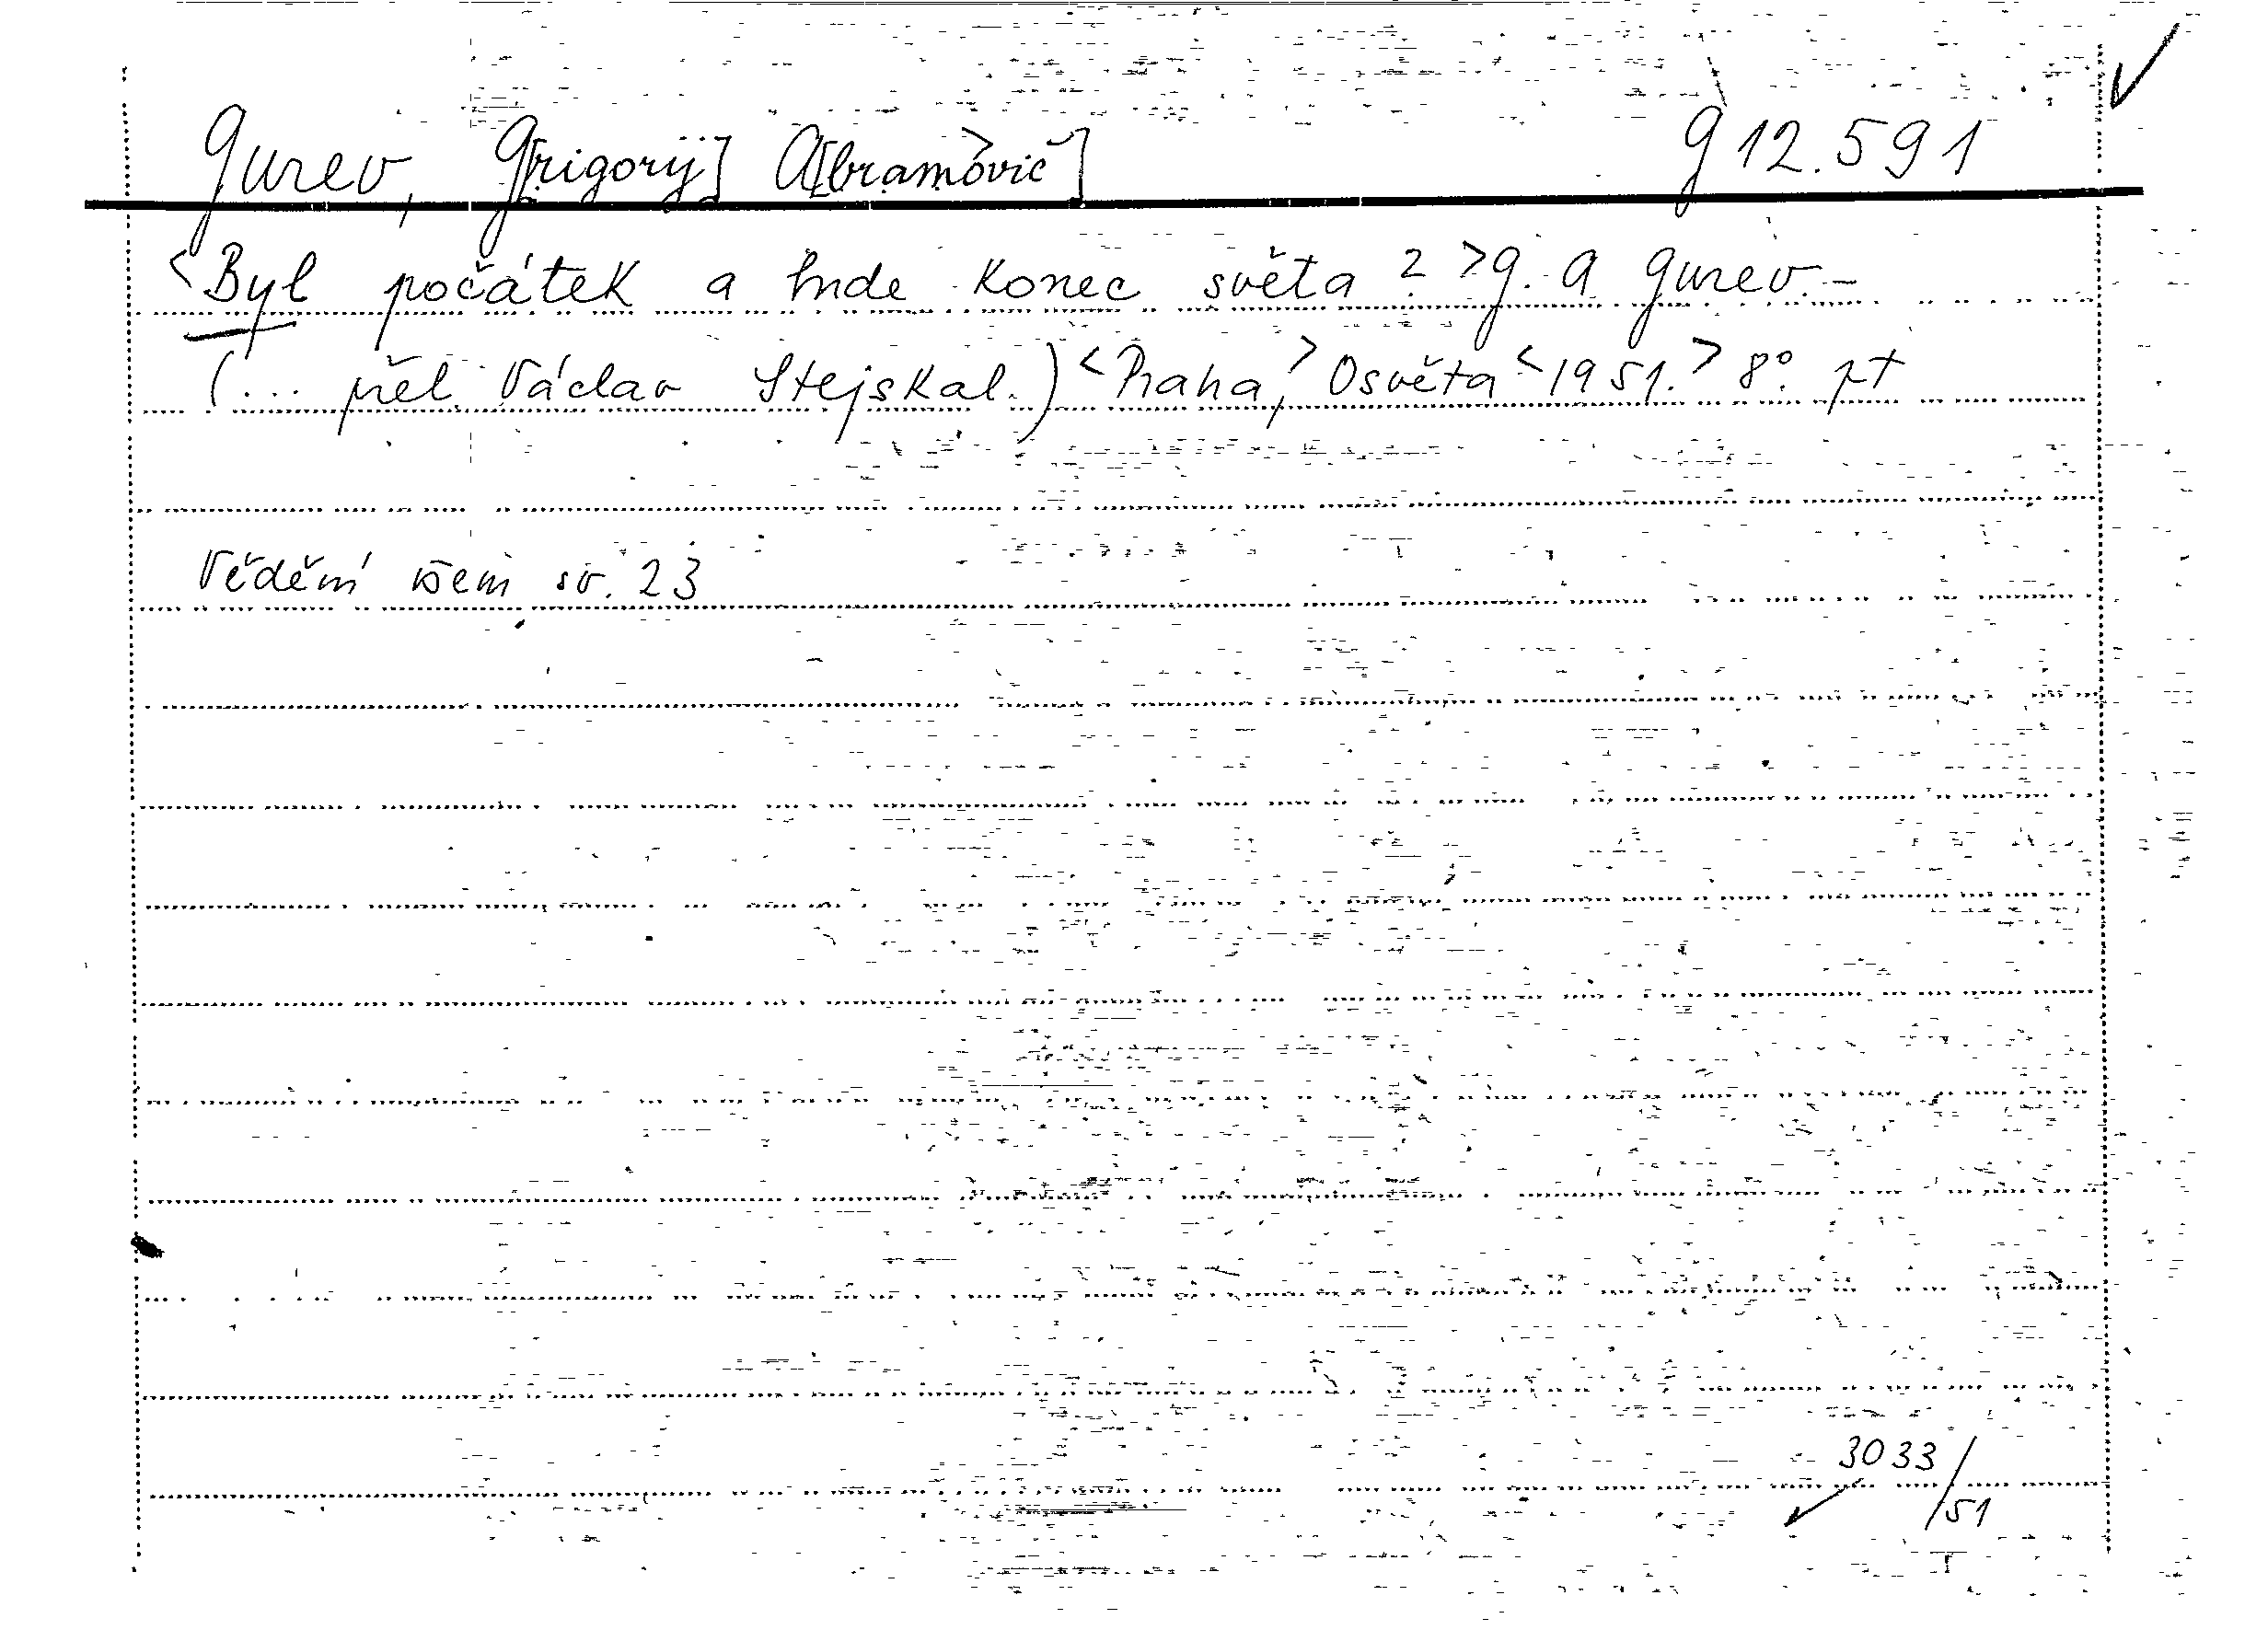 Gurev, G[rigorij] A[bramovič] G 12.591
<Byl počátek a bude konec světa?> G. A. Gurev. –
(... přel. Václav Stejskal.) <Praha,> Osvěta <1951.> 8°.
Vědění všem sv. 23
3033/51